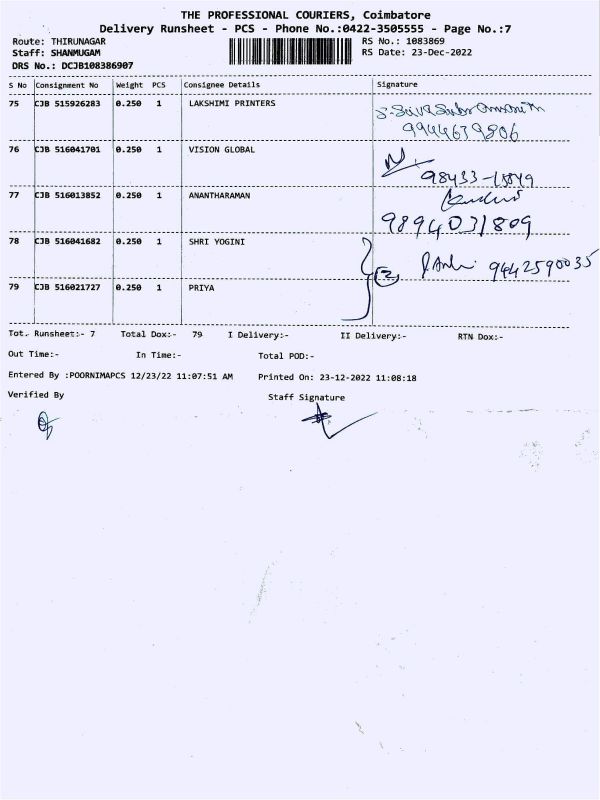 THE PROFESSIONAL COURIERS, Coimbatore
Delivery Runsheet - PCS - Phone No.:0422-3505555 - Page No.:7
Route: THIRUNAGAR
RS No.: 1083869
Staff: SHANMUGAM
RS Date: 23-Dec-2022
DRS No.: DCJB108386907
S No Consignment No Weight PCS Consignee Details Signature
75 CJB 515926283 0.250 1 LAKSHIMI PRINTERS
9944639806
76 CJB 516041701 0.250 1 VISION GLOBAL
77 CJB 516013852 0.250 1 ANANTHARAMAN
9894031809
78 CJB 516041682 0.250 1 SHRI YOGINI
2 9442590035
79 CJB 516021727 0.250 1 PRIYA
Tot. Runsheet:- 7 Total Dox:- 79 I Delivery:- II Delivery:- RTN Dox:-
Out Time:- In Time:- Total POD:-
Entered By :POORNIMAPCS 12/23/22 11:07:51 AM Printed On: 23-12-2022 11:08:18
Verified By Staff Signature